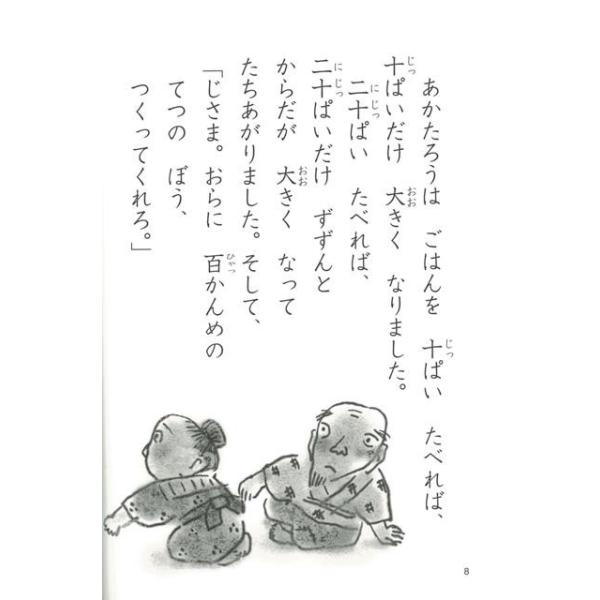 あかたろうは　ごはんを　十ぱい　たべれば、
十ぱいだけ　大きく　なりました。
二十ぱい　たべれば、
二十ぱいだけ　ずずんと
からだが　大きく　なって
たちあがりました。そして、
「じさま。おらに　百かんめの
てつの　ぼう、
つくってくれろ。」
8